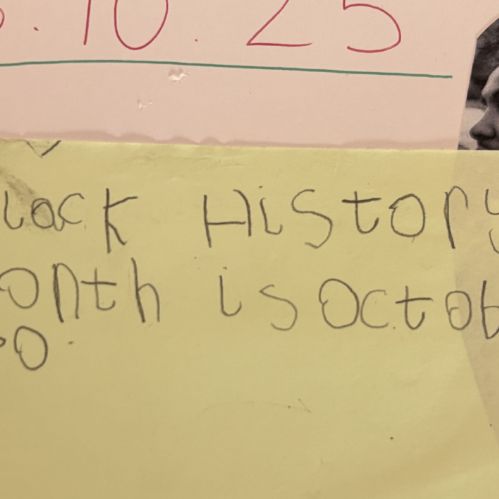 .10.25
lack HiStory
onth is Octob
o.